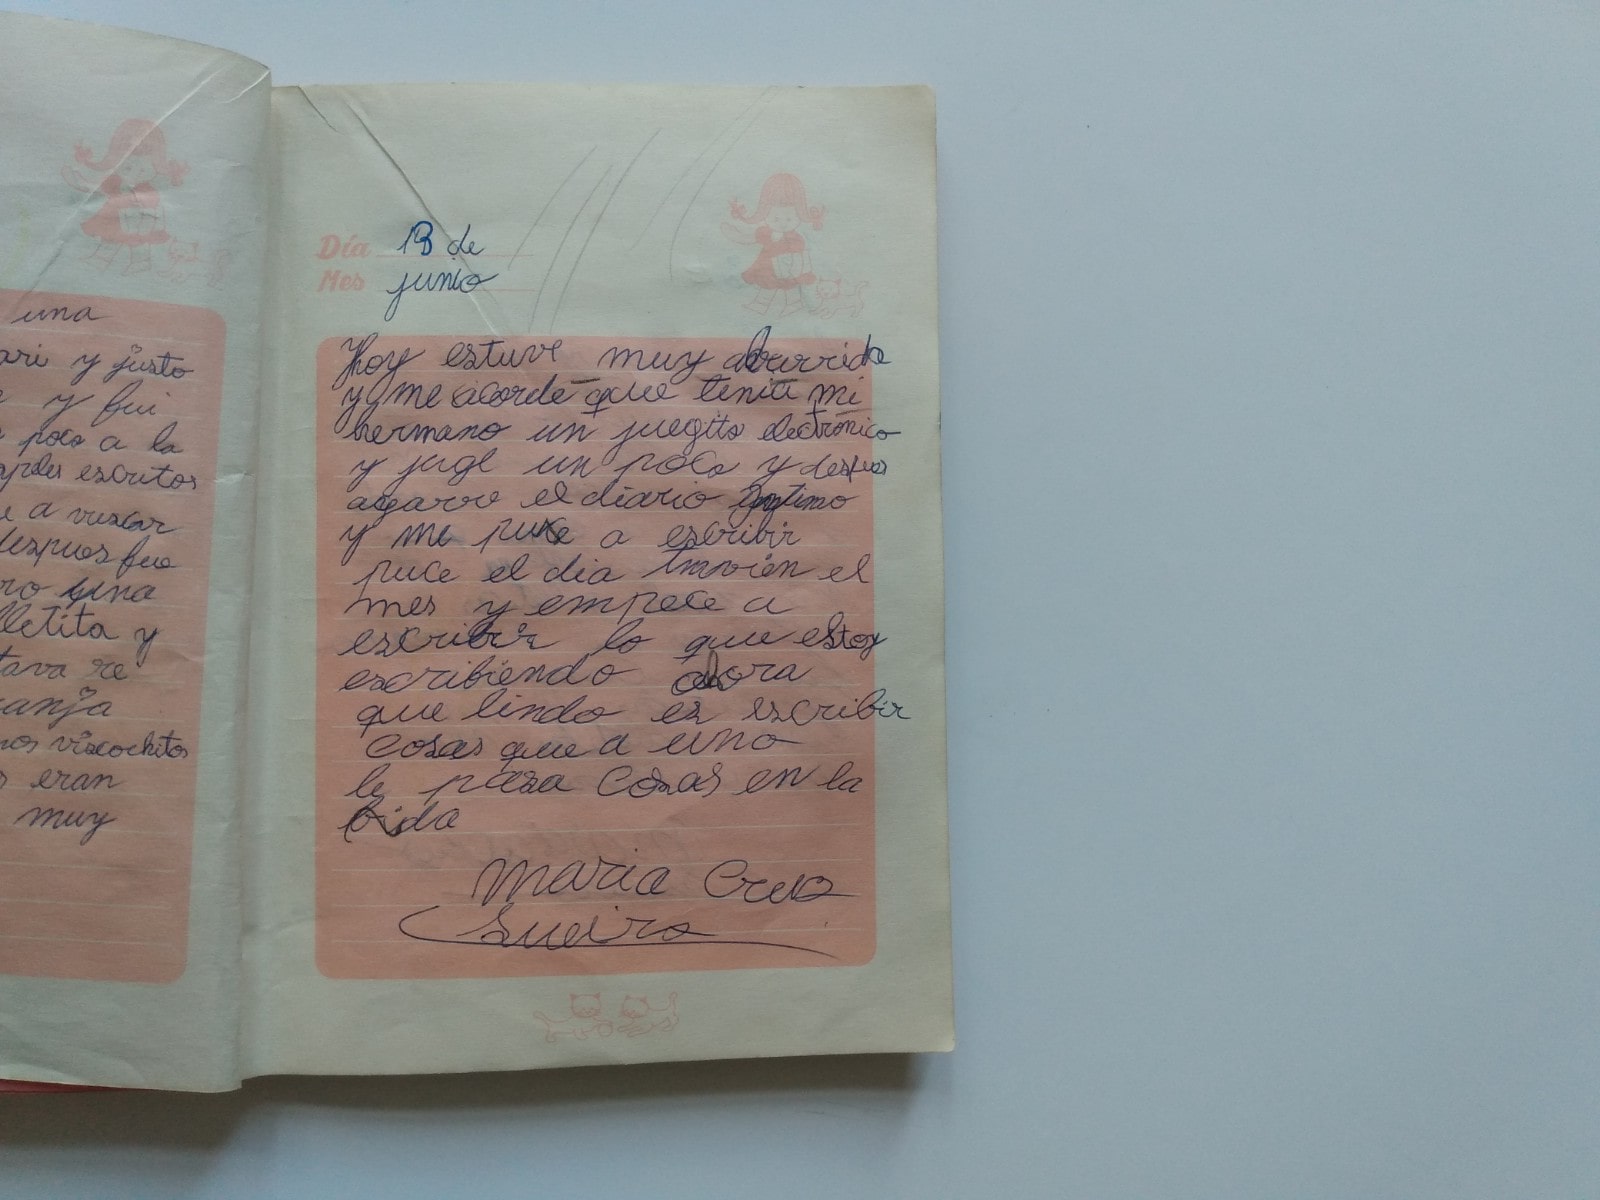 una
ari y justo
e y fui
poco a la
escritos
e a vuscar
despues fue
ro una
lletita y
tava re
anja
nos viscochitos
s eran
muy
Día 13 de
Mes junio
Hoy estuve muy aburrida
y me acorde que tenia mi
hermano un juegito electronico
y juge un poco y despues
agarro el diario intimo
y me puce a escribir
puce el dia tmvien el
mes y empece a
escribir lo que estoy
escribiendo ahora
que lindo es escribir
cosas que a uno
le pasa cosas en la
bida
Maria Cruz
Sueiro